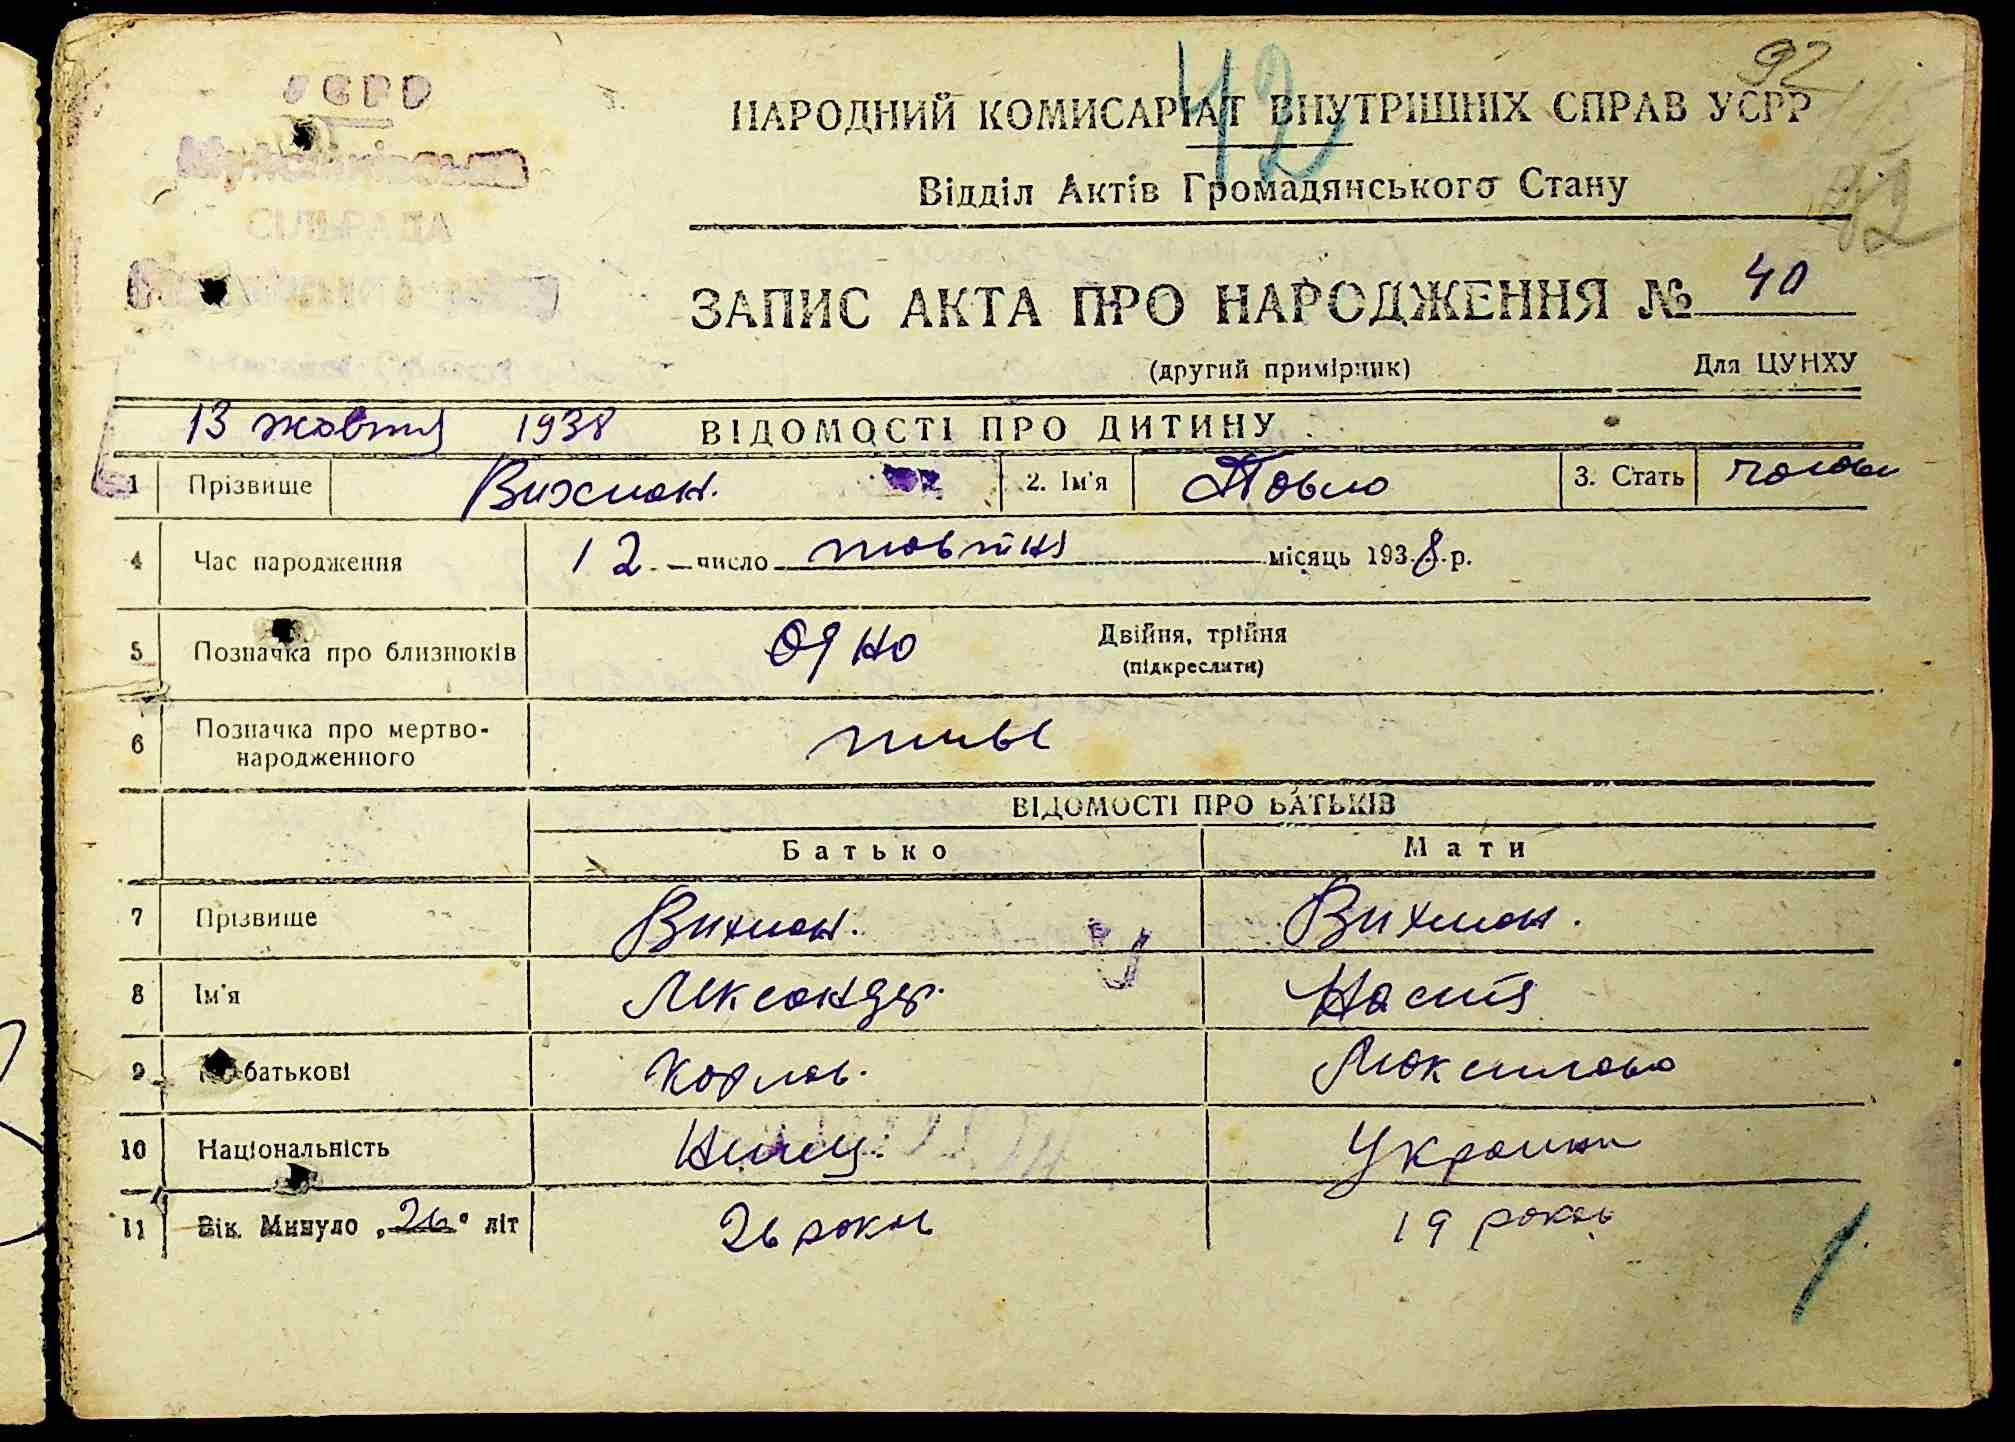 УСРР
СІЛЬРАДА
42
92
НАРОДНИЙ КОМИСАРІАТ ВНУТРІШНІХ СПРАВ УСРР
Відділ Актів Громадянського Стану
ЗАПИС АКТА ПРО НАРОДЖЕННЯ № 40
(другий примірник) Для ЦУНХУ
13 жовтня 1938 ВІДОМОСТІ ПРО ДИТИНУ
1 Прізвище Вихман. 2. Ім'я Павло 3. Стать
4 Час народження 12 число жовтня місяць 1938 р.
5 Позначка про близнюків Одно Двійня, трійня
(підкреслити)
6 Позначка про мертво-
народженного живе
ВІДОМОСТІ ПРО БАТЬКІВ
Батько Мати
7 Прізвище Вихман. Вихман.
8 Ім'я Лександр. Настя
9 По батькові Карлов.
10 Національність Німец Украинка
11 Вік. Минуло „26" літ 26 років 19 років